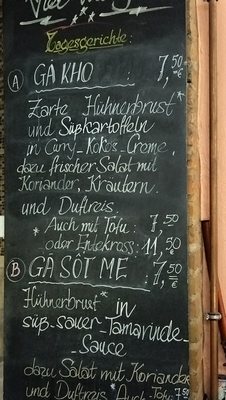 Tagesgerichte:
A GÀ KHO : 7,50 €
Zarte Hühnerbrust*
und Süßkartoffeln
in Curry-Kokos-Creme,
dazu frischer Salat mit
Koriander, Kräutern.
und Duftreis.
* Auch mit Tofu : 7,50
oder Entekross : 11,50
B GÀ SỐT ME : 7,50 €
Hühnerbrust* in
süß-sauer-Tamarinde-
-Sauce
dazu Salat mit Koriander
und Duftreis *Auch-Tofu 7,50